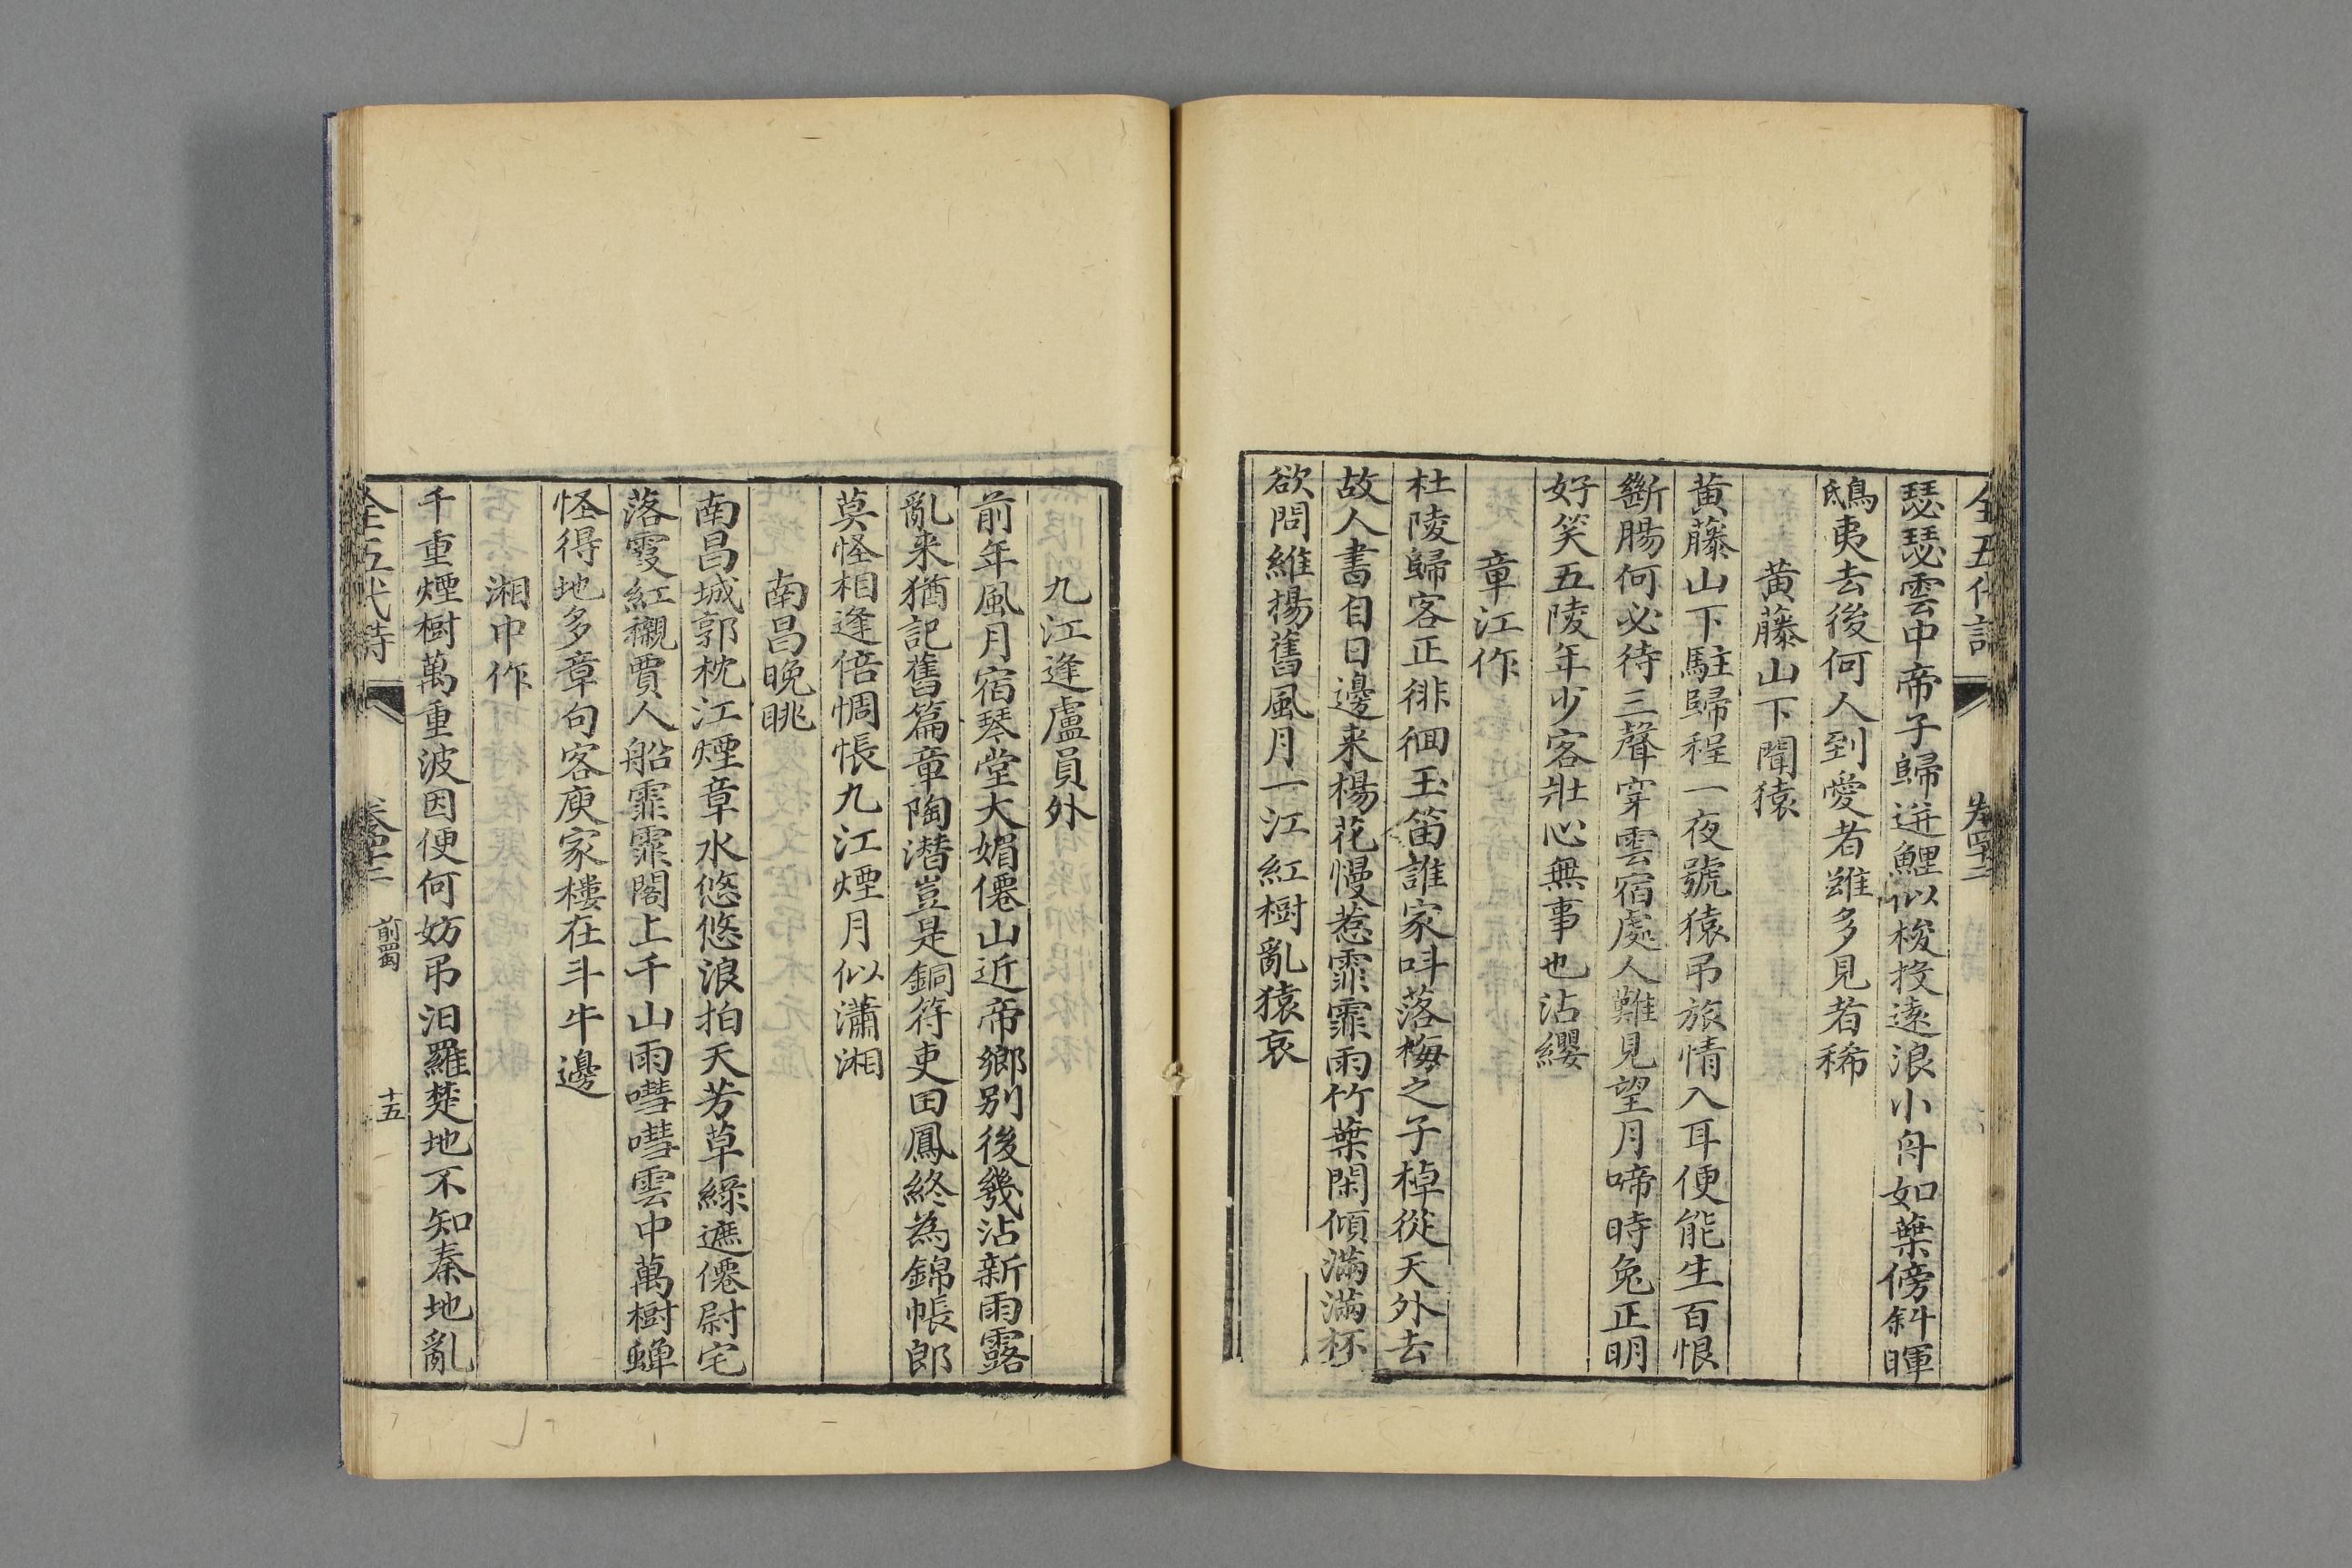 全五代詩
瑟瑟雲中帝子歸迸鯉似梭投遠浪小舟如葉傍斜暉
鴟夷去後何人到愛者雖多見者稀
黄藤山下聞猿
黄藤山下駐歸程一夜號猿吊旅情入耳便能生百恨
斷腸何必待三聲穿雲宿處人難見望月啼時兔正明
好笑五陵年少客壯心無事也沾纓
章江作
杜陵歸客正徘徊玉笛誰家叫落梅之子棹從天外去
故人書自日邊来楊花慢惹霏霏雨竹葉閑傾滿滿杯
欲問維揚舊風月一江紅樹亂猿哀
九江逢盧員外
前年風月宿琴堂大媚僊山近帝鄉别後幾沾新雨露
亂来猶記舊篇章陶潛豈是銅符吏田鳳終為錦帳郎
莫怪相逢倍惆悵九江煙月似瀟湘
南昌晚眺
南昌城郭枕江煙章水悠悠浪拍天芳草綠遮僊尉宅
落霞紅襯賈人船霏霏閣上千山雨嘒嘒雲中萬樹蟬
怪得地多章句客庾家樓在斗牛邊
湘中作
千重煙樹萬重波因便何妨吊汨羅楚地不知秦地亂
全五代詩
前蜀
十五